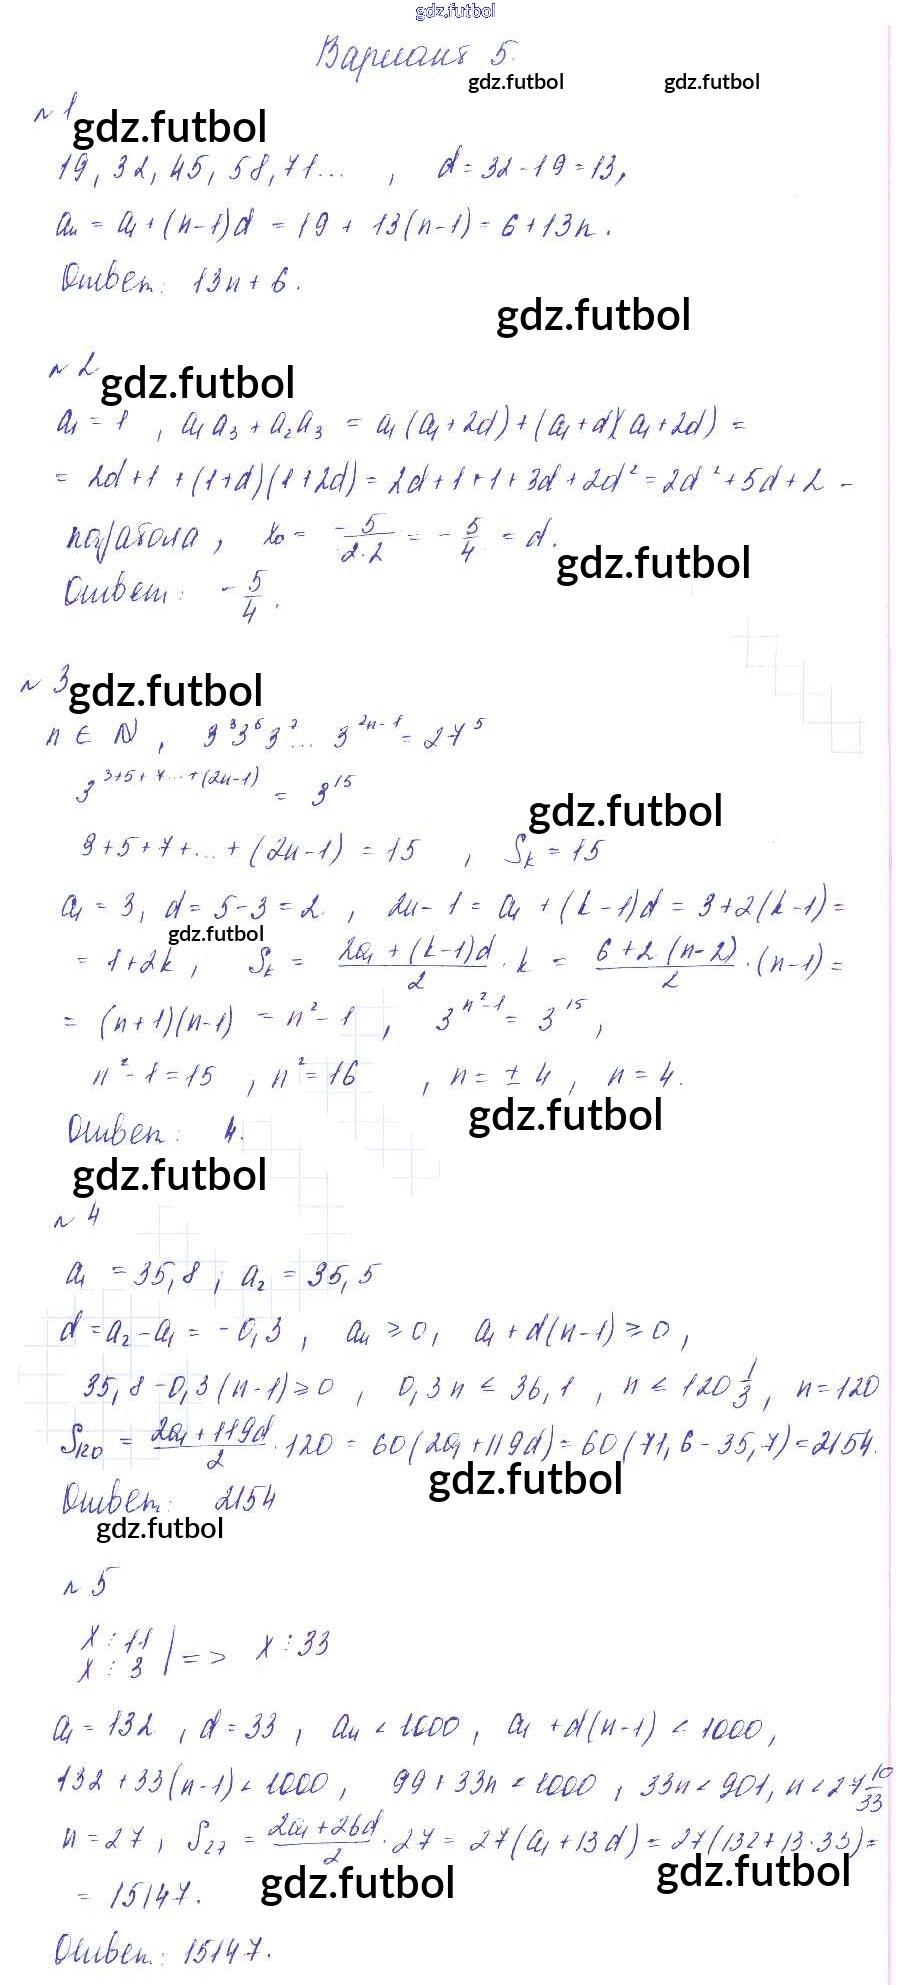 gdz.futbol
Вариант 5.
gdz.futbol gdz.futbol
№1
gdz.futbol
19, 32, 45, 58, 71... , d = 32 - 19 = 13,
aₙ = a₁ + (n-1)d = 19 + 13(n-1) = 6 + 13n.
Ответ: 13n + 6.
gdz.futbol
№2
gdz.futbol
a₁ = 1 , a₁a₃ + a₂a₃ = a₁(a₁ + 2d) + (a₁ + d)(a₁ + 2d) =
= 2d + 1 + (1+d)(1+2d) = 2d + 1 + 1 + 3d + 2d² = 2d² + 5d + 2 -
парабола, x₀ = -5/2·2 = -5/4 = d.
gdz.futbol
Ответ: -5/4.
№3
gdz.futbol
n ∈ N , 3³3⁵3⁷... 3²ⁿ⁻¹ = 27⁵
3^(3+5+7...+(2n-1)) = 3¹⁵
gdz.futbol
3+5+7+...+(2n-1) = 15 , Sₖ = 15
a₁ = 3, d = 5-3 = 2 , 2n-1 = a₁ + (k-1)d = 3+2(k-1) =
gdz.futbol
= 1+2k, Sₖ = (2a₁ + (k-1)d)/2 · k = (6+2(n-2))/2 · (n-1) =
= (n+1)(n-1) = n² - 1 , 3^(n²-1) = 3¹⁵ ,
n² - 1 = 15 , n² = 16 , n = ± 4 , n = 4.
gdz.futbol
Ответ: 4.
gdz.futbol
№4
a₁ = 35,8 ; a₂ = 35,5
d = a₂ - a₁ = -0,3 , aₙ ≥ 0, a₁ + d(n-1) ≥ 0 ,
35,8 - 0,3(n-1) ≥ 0 , 0,3n ≤ 36,1 , n ≤ 120 1/3 , n = 120
S₁₂₀ = (2a₁ + 119d)/2 · 120 = 60(2a₁ + 119d) = 60(71,6 - 35,7) = 2154.
gdz.futbol
Ответ: 2154
gdz.futbol
№5
x ⋮ 11
x ⋮ 3 | => x ⋮ 33
a₁ = 132 , d = 33 , aₙ < 1000 , a₁ + d(n-1) < 1000,
132 + 33(n-1) < 1000 , 99 + 33n < 1000 , 33n < 901, n < 27 10/33
n = 27 , S₂₇ = (2a₁ + 26d)/2 · 27 = 27(a₁ + 13d) = 27(132 + 13·33) =
gdz.futbol gdz.futbol
= 15147.
Ответ: 15147.